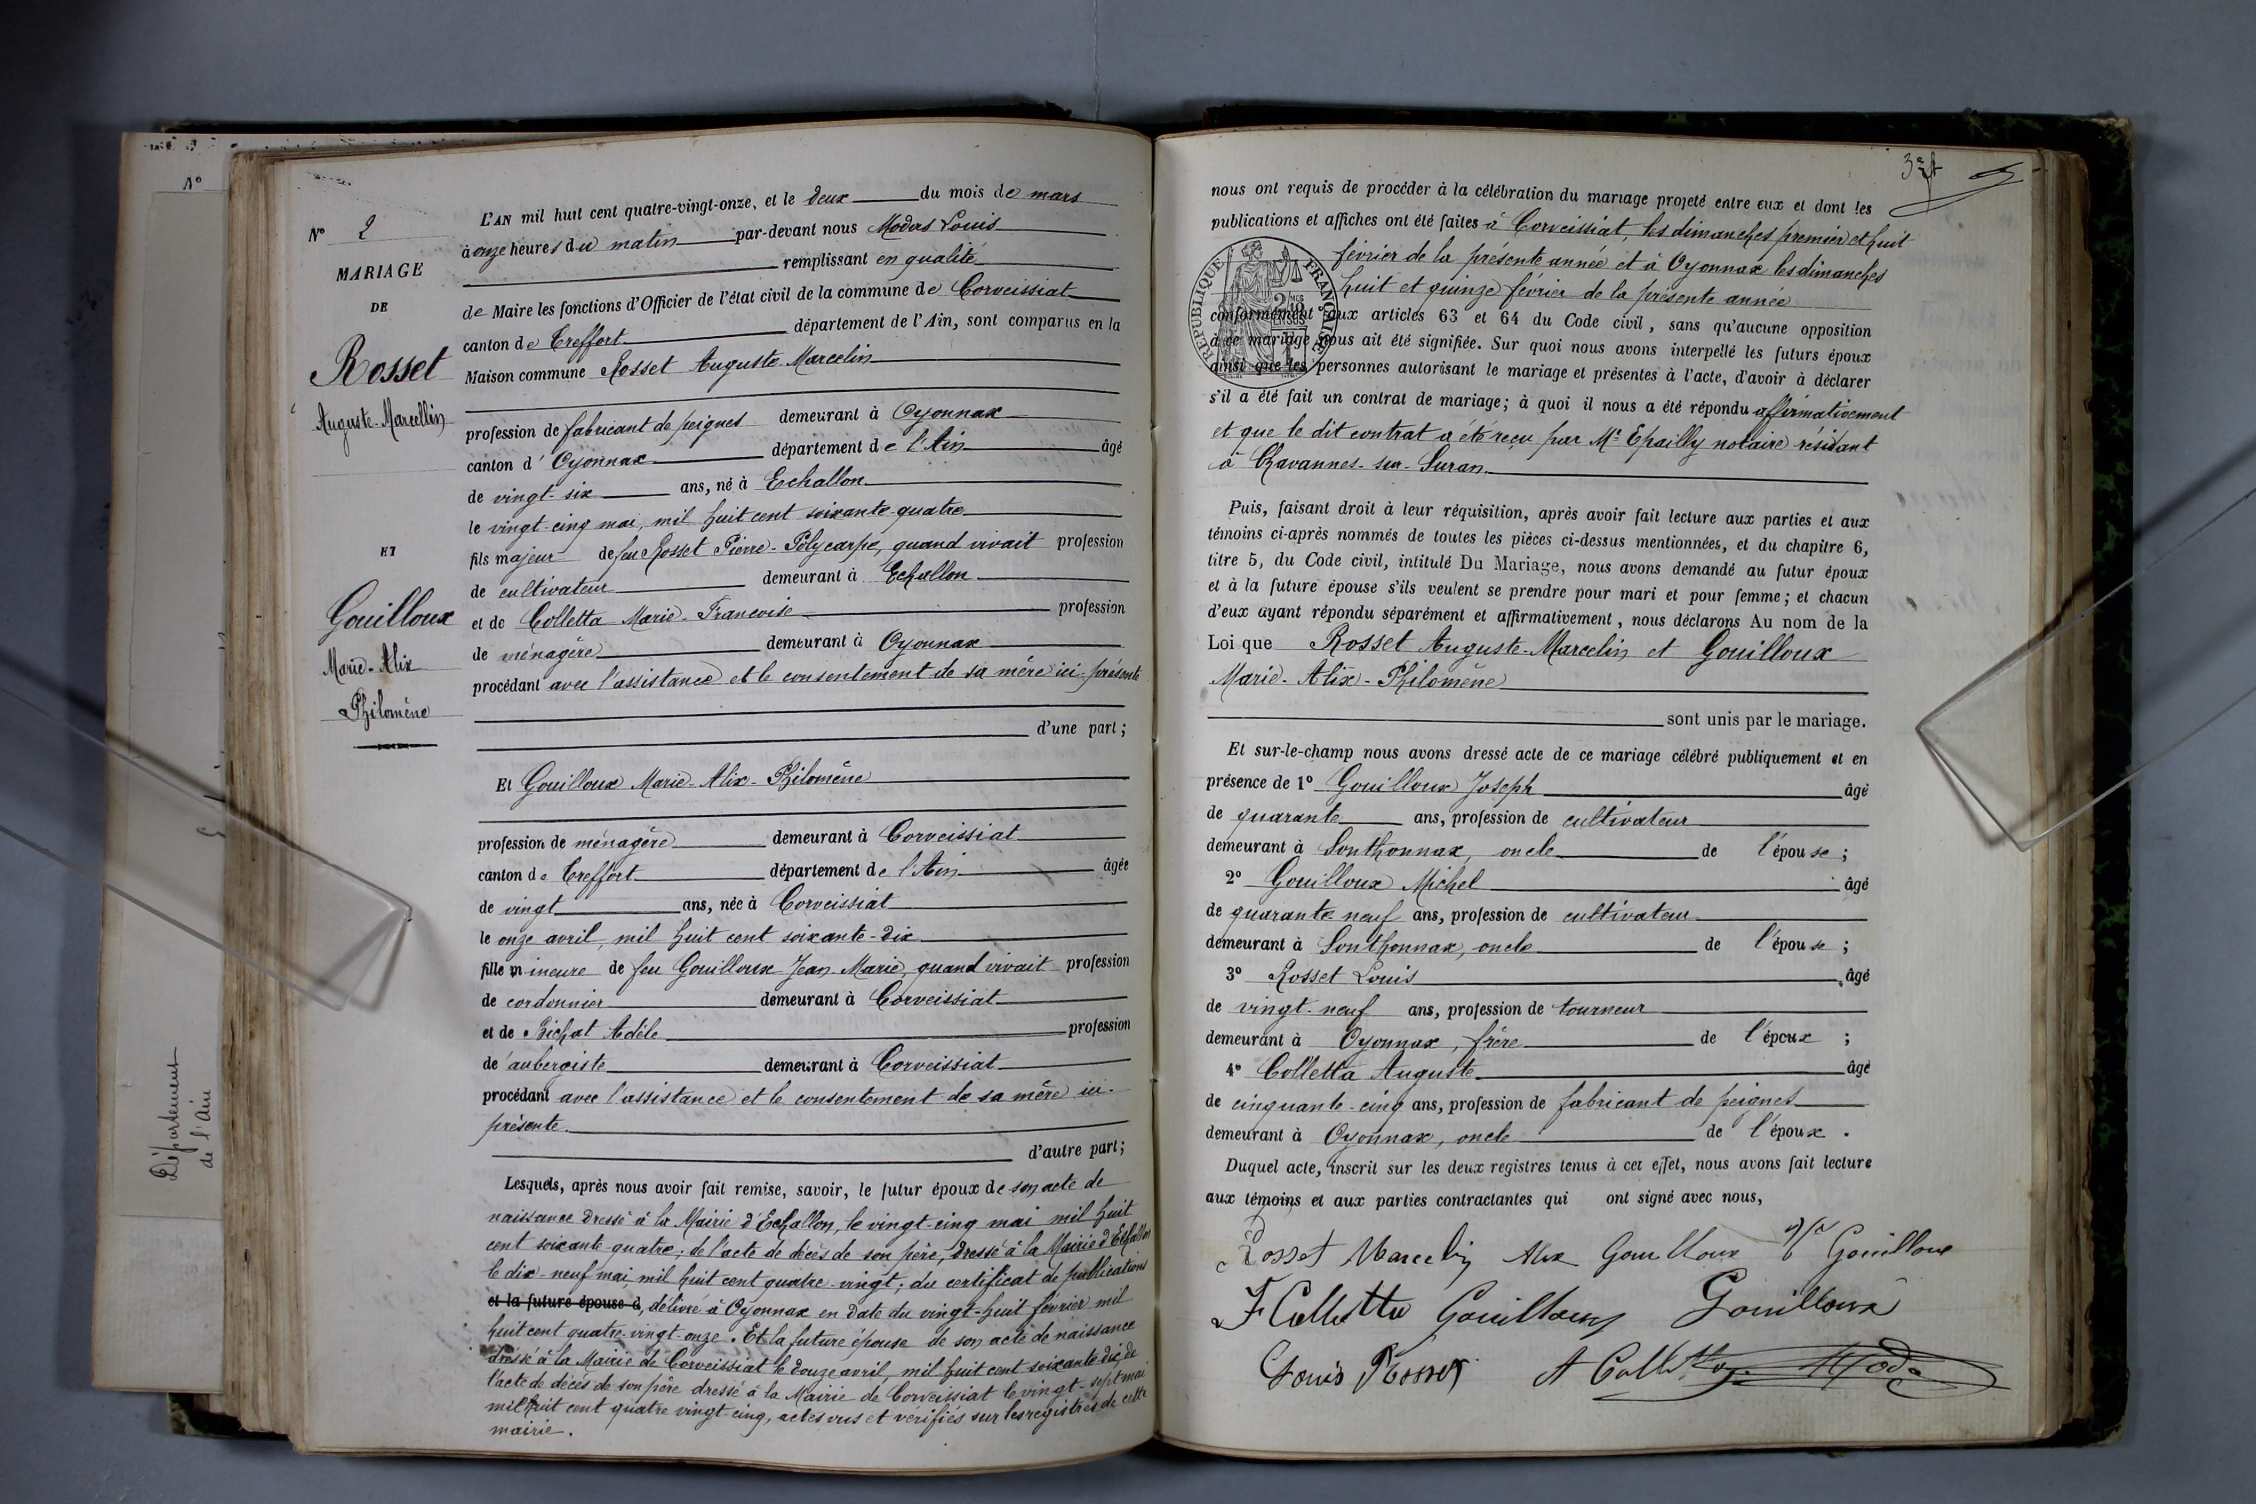 N°
Département
de l'Ain
N° 2
MARIAGE
DE
Rosset
Auguste-Marcellin
ET
Gouilloux
Marie-Alix
Philomène
L'AN mil huit cent quatre-vingt-onze, et le deux du mois de mars
à onze heures du matin par-devant nous Modas Louis
remplissant en qualité
de Maire les fonctions d'Officier de l'état civil de la commune de Corveissiat
canton de Treffort département de l'Ain, sont comparus en la
Maison commune Rosset Auguste-Marcelin
profession de fabricant de peignes demeurant à Oyonnax
canton d'Oyonnax département de l'Ain âgé
de vingt-six ans, né à Echallon
le vingt-cinq mai, mil huit cent soixante-quatre
fils majeur de feu Rosset Pierre-Polycarpe, quand vivait profession
de cultivateur demeurant à Echallon
et de Colletta Marie-Francoise profession
de ménagère demeurant à Oyonnax
procédant avec l'assistance et le consentement de sa mère ici-présente
d'une part;
Et Gouilloux Marie-Alix-Philomène
profession de ménagère demeurant à Corveissiat
canton de Treffort département de l'Ain âgée
de vingt ans, née à Corveissiat
le onze avril, mil huit cent soixante-dix
fille mineure de feu Gouilloux Jean-Marie, quand vivait profession
de cordonnier demeurant à Corveissiat
et de Bichat Adèle profession
de aubergiste demeurant à Corveissiat
procédant avec l'assistance et le consentement de sa mère ici-
présente.
d'autre part;
Lesquels, après nous avoir fait remise, savoir, le futur époux de son acte de
naissance dressé à la Mairie d'Echallon, le vingt-cinq mai mil huit
cent soixante-quatre; de l'acte de décès de son père, dressé à la Mairie d'Echallon
le dix-neuf mai mil huit cent quatre-vingt; du certificat de publications
et la future épouse d, délivré à Oyonnax en date du vingt-huit février mil
huit cent quatre-vingt-onze. Et la future épouse de son acte de naissance
dressé à la Mairie de Corveissiat le douze avril, mil huit cent soixante dix, de
l'acte de décès de son père dressé à la Mairie de Corveissiat le vingt-sept mai
mil huit cent quatre vingt-cinq, actes vus et vérifiés sur les registres de cette
mairie.
nous ont requis de procéder à la célébration du mariage projeté entre eux et dont les
publications et affiches ont été faites à Corveissiat, les dimanches premier et huit
février de la présente année et à Oyonnax les dimanches
huit et quinze février de la présente année
RÉPUBLIQUE FRANÇAISE
conformément aux articles 63 et 64 du Code civil, sans qu'aucune opposition
à ce mariage nous ait été signifiée. Sur quoi nous avons interpellé les futurs époux
ainsi que les personnes autorisant le mariage et présentes à l'acte, d'avoir à déclarer
s'il a été fait un contrat de mariage; à quoi il nous a été répondu affirmativement
et que le dit contrat a été reçu par Me Epailly notaire résidant
à Chavannes-sur-Suran
Puis, faisant droit à leur réquisition, après avoir fait lecture aux parties et aux
témoins ci-après nommés de toutes les pièces ci-dessus mentionnées, et du chapitre 6,
titre 5, du Code civil, intitulé Du Mariage, nous avons demandé au futur époux
et à la future épouse s'ils veulent se prendre pour mari et pour femme; et chacun
d'eux ayant répondu séparément et affirmativement, nous déclarons Au nom de la
Loi que Rosset Auguste-Marcelin et Gouilloux
Marie-Alix-Philomène
sont unis par le mariage.
Et sur-le-champ nous avons dressé acte de ce mariage célébré publiquement et en
présence de 1° Gouilloux Joseph âgé
de quarante ans, profession de cultivateur
demeurant à Sonthonnax, oncle de l'épouse;
2° Gouilloux Michel âgé
de quarante neuf ans, profession de cultivateur
demeurant à Sonthonnax, oncle de l'épouse;
3° Rosset Louis âgé
de vingt-neuf ans, profession de tourneur
demeurant à Oyonnax, frère de l'époux;
4° Colletta Auguste âgé
de cinquante-cinq ans, profession de fabricant de peignes
demeurant à Oyonnax, oncle de l'époux.
Duquel acte, inscrit sur les deux registres tenus à cet effet, nous avons fait lecture
aux témoins et aux parties contractantes qui ont signé avec nous,
Rosset Marcelin Alix Gouilloux Gouilloux
F Colletta Gouilloux Gouilloux
Louis Rosset A Colletta